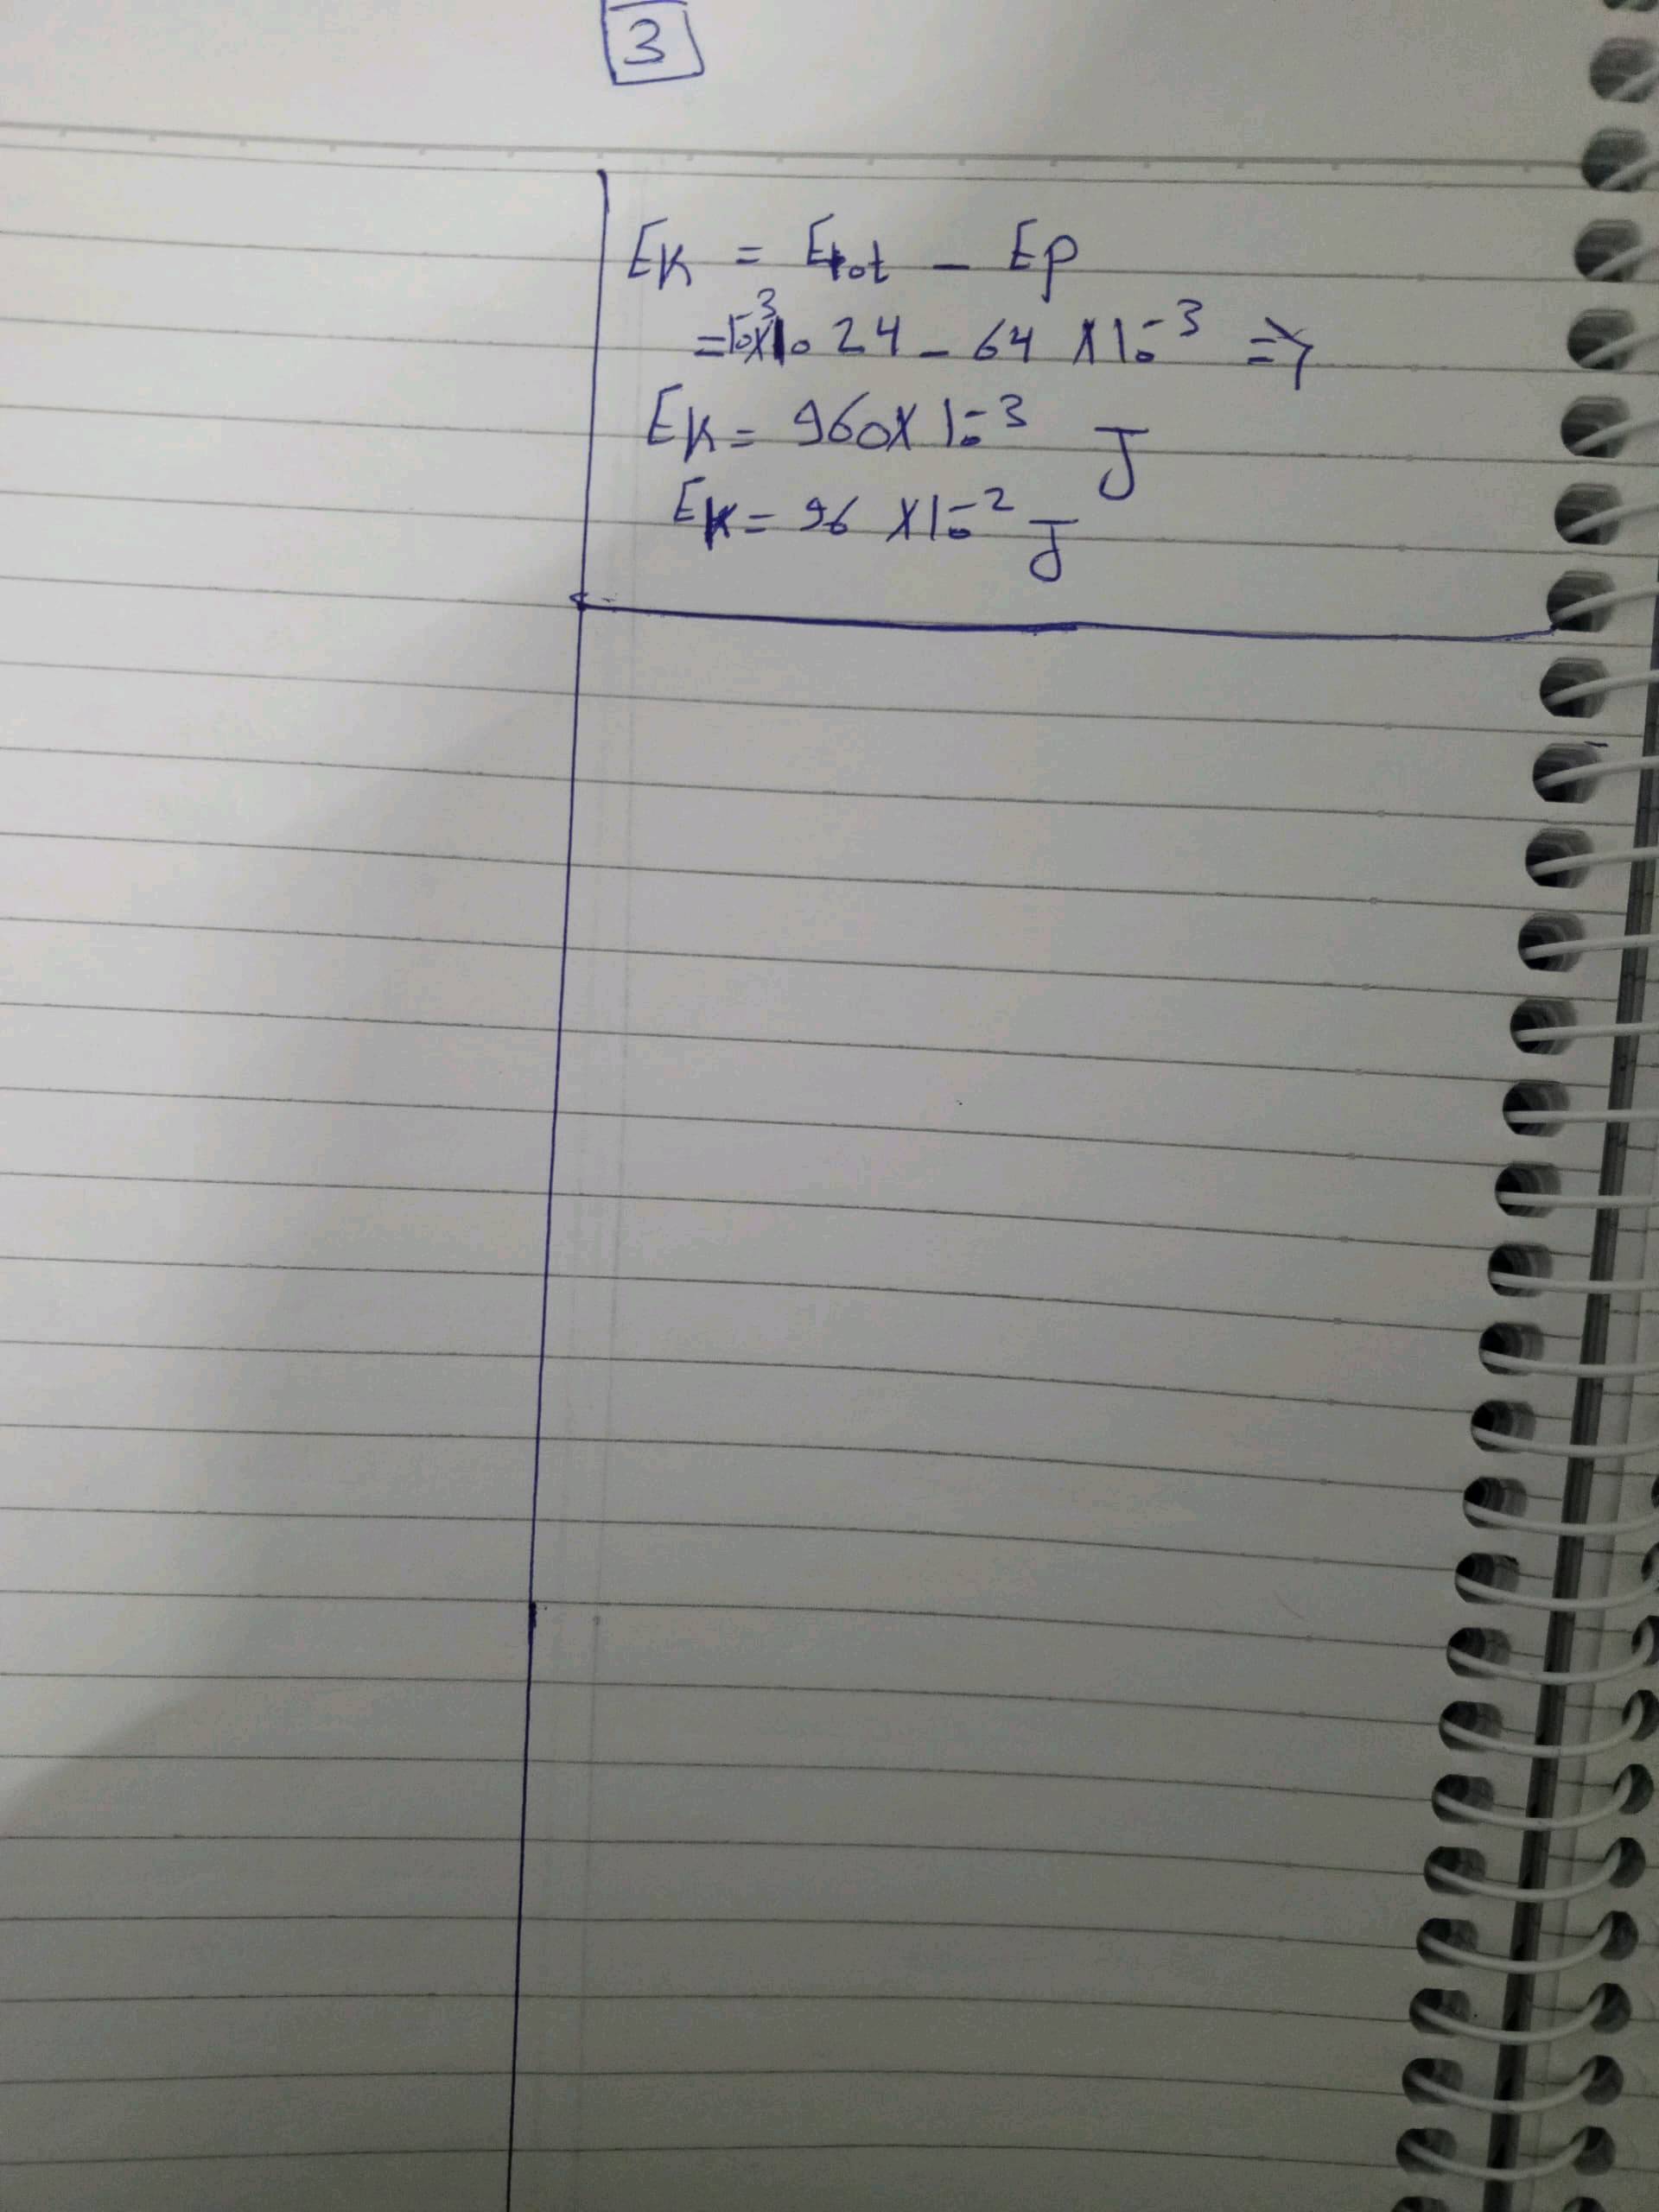 3
Ek = Etot - Ep
= 10⁻³ x 1024 - 64 x 10⁻³ =>
Ek = 960 x 10⁻³ J
Ek = 96 x 10⁻² J